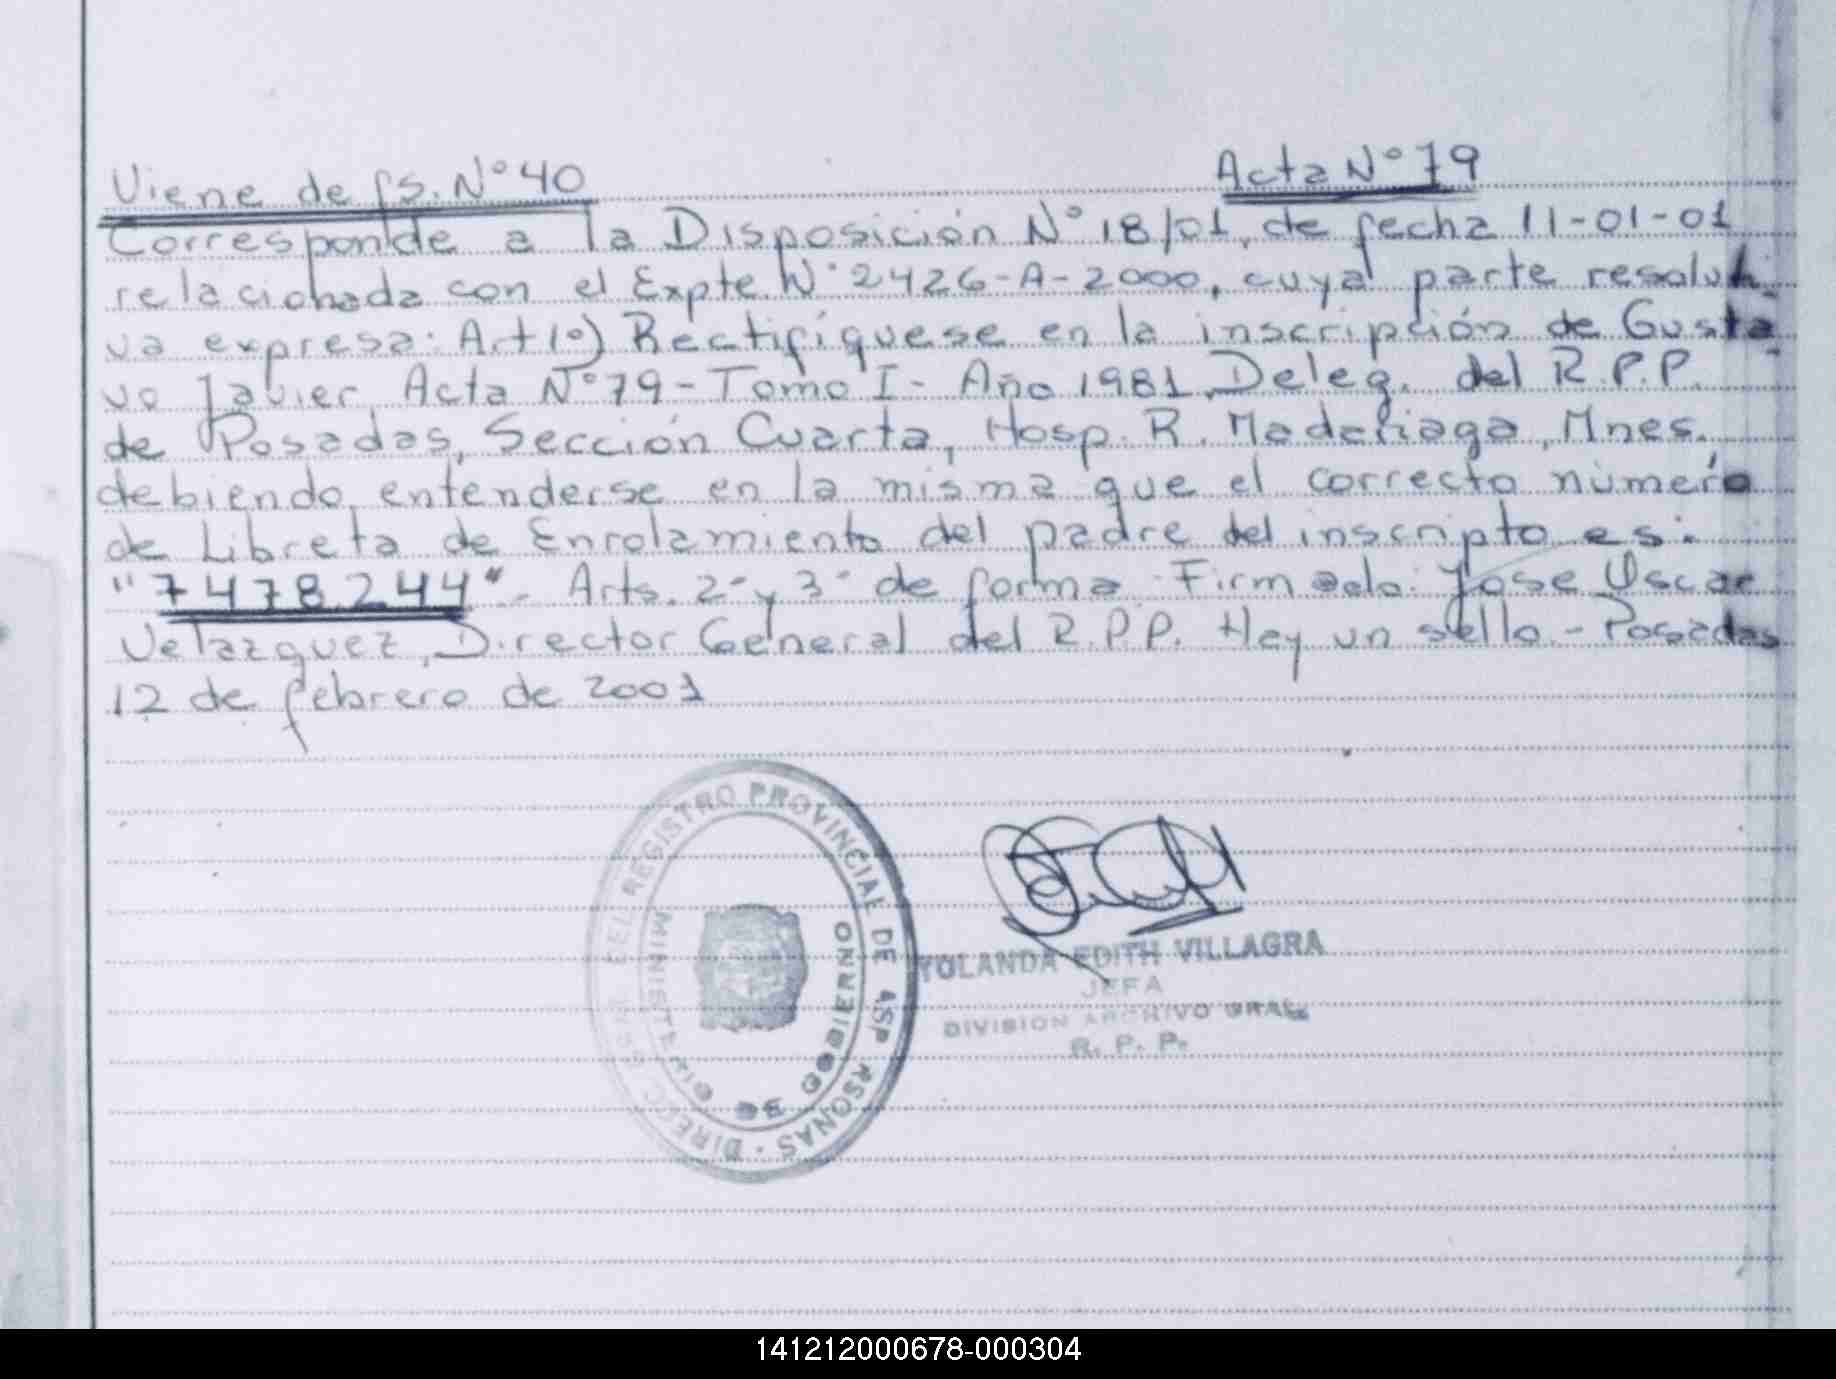 Viene de fs. N°40
Acta N°79
Corresponde a la Disposición N° 18/01, de fecha 11-01-01
relacionada con el Expte. N° 2426-A-2000, cuya parte resoluti
va expresa: Art 1°) Rectifíquese en la inscripción de Gusta
vo Javier Acta N°79-Tomo I- Año 1981 Deleg. del R.P.P.
de Posadas, Sección Cuarta, Hosp. R. Madariaga, Mnes.
debiendo entenderse en la misma que el correcto número
de Libreta de Enrolamiento del padre del inscripto es:
"7478.244"- Arts. 2° y 3° de forma. Firmado: Jose Oscar
Velazquez, Director General del R.P.P. Hay un sello.- Posadas
12 de febrero de 2001
DIRECC GRAL DEL REGISTRO PROVINCIAL DE LAS PERSONAS ·
MINISTERIO DE GOBIERNO
YOLANDA EDITH VILLAGRA
JEFA
DIVISION ARCHIVO GRAL.
R. P. P.
141212000678-000304